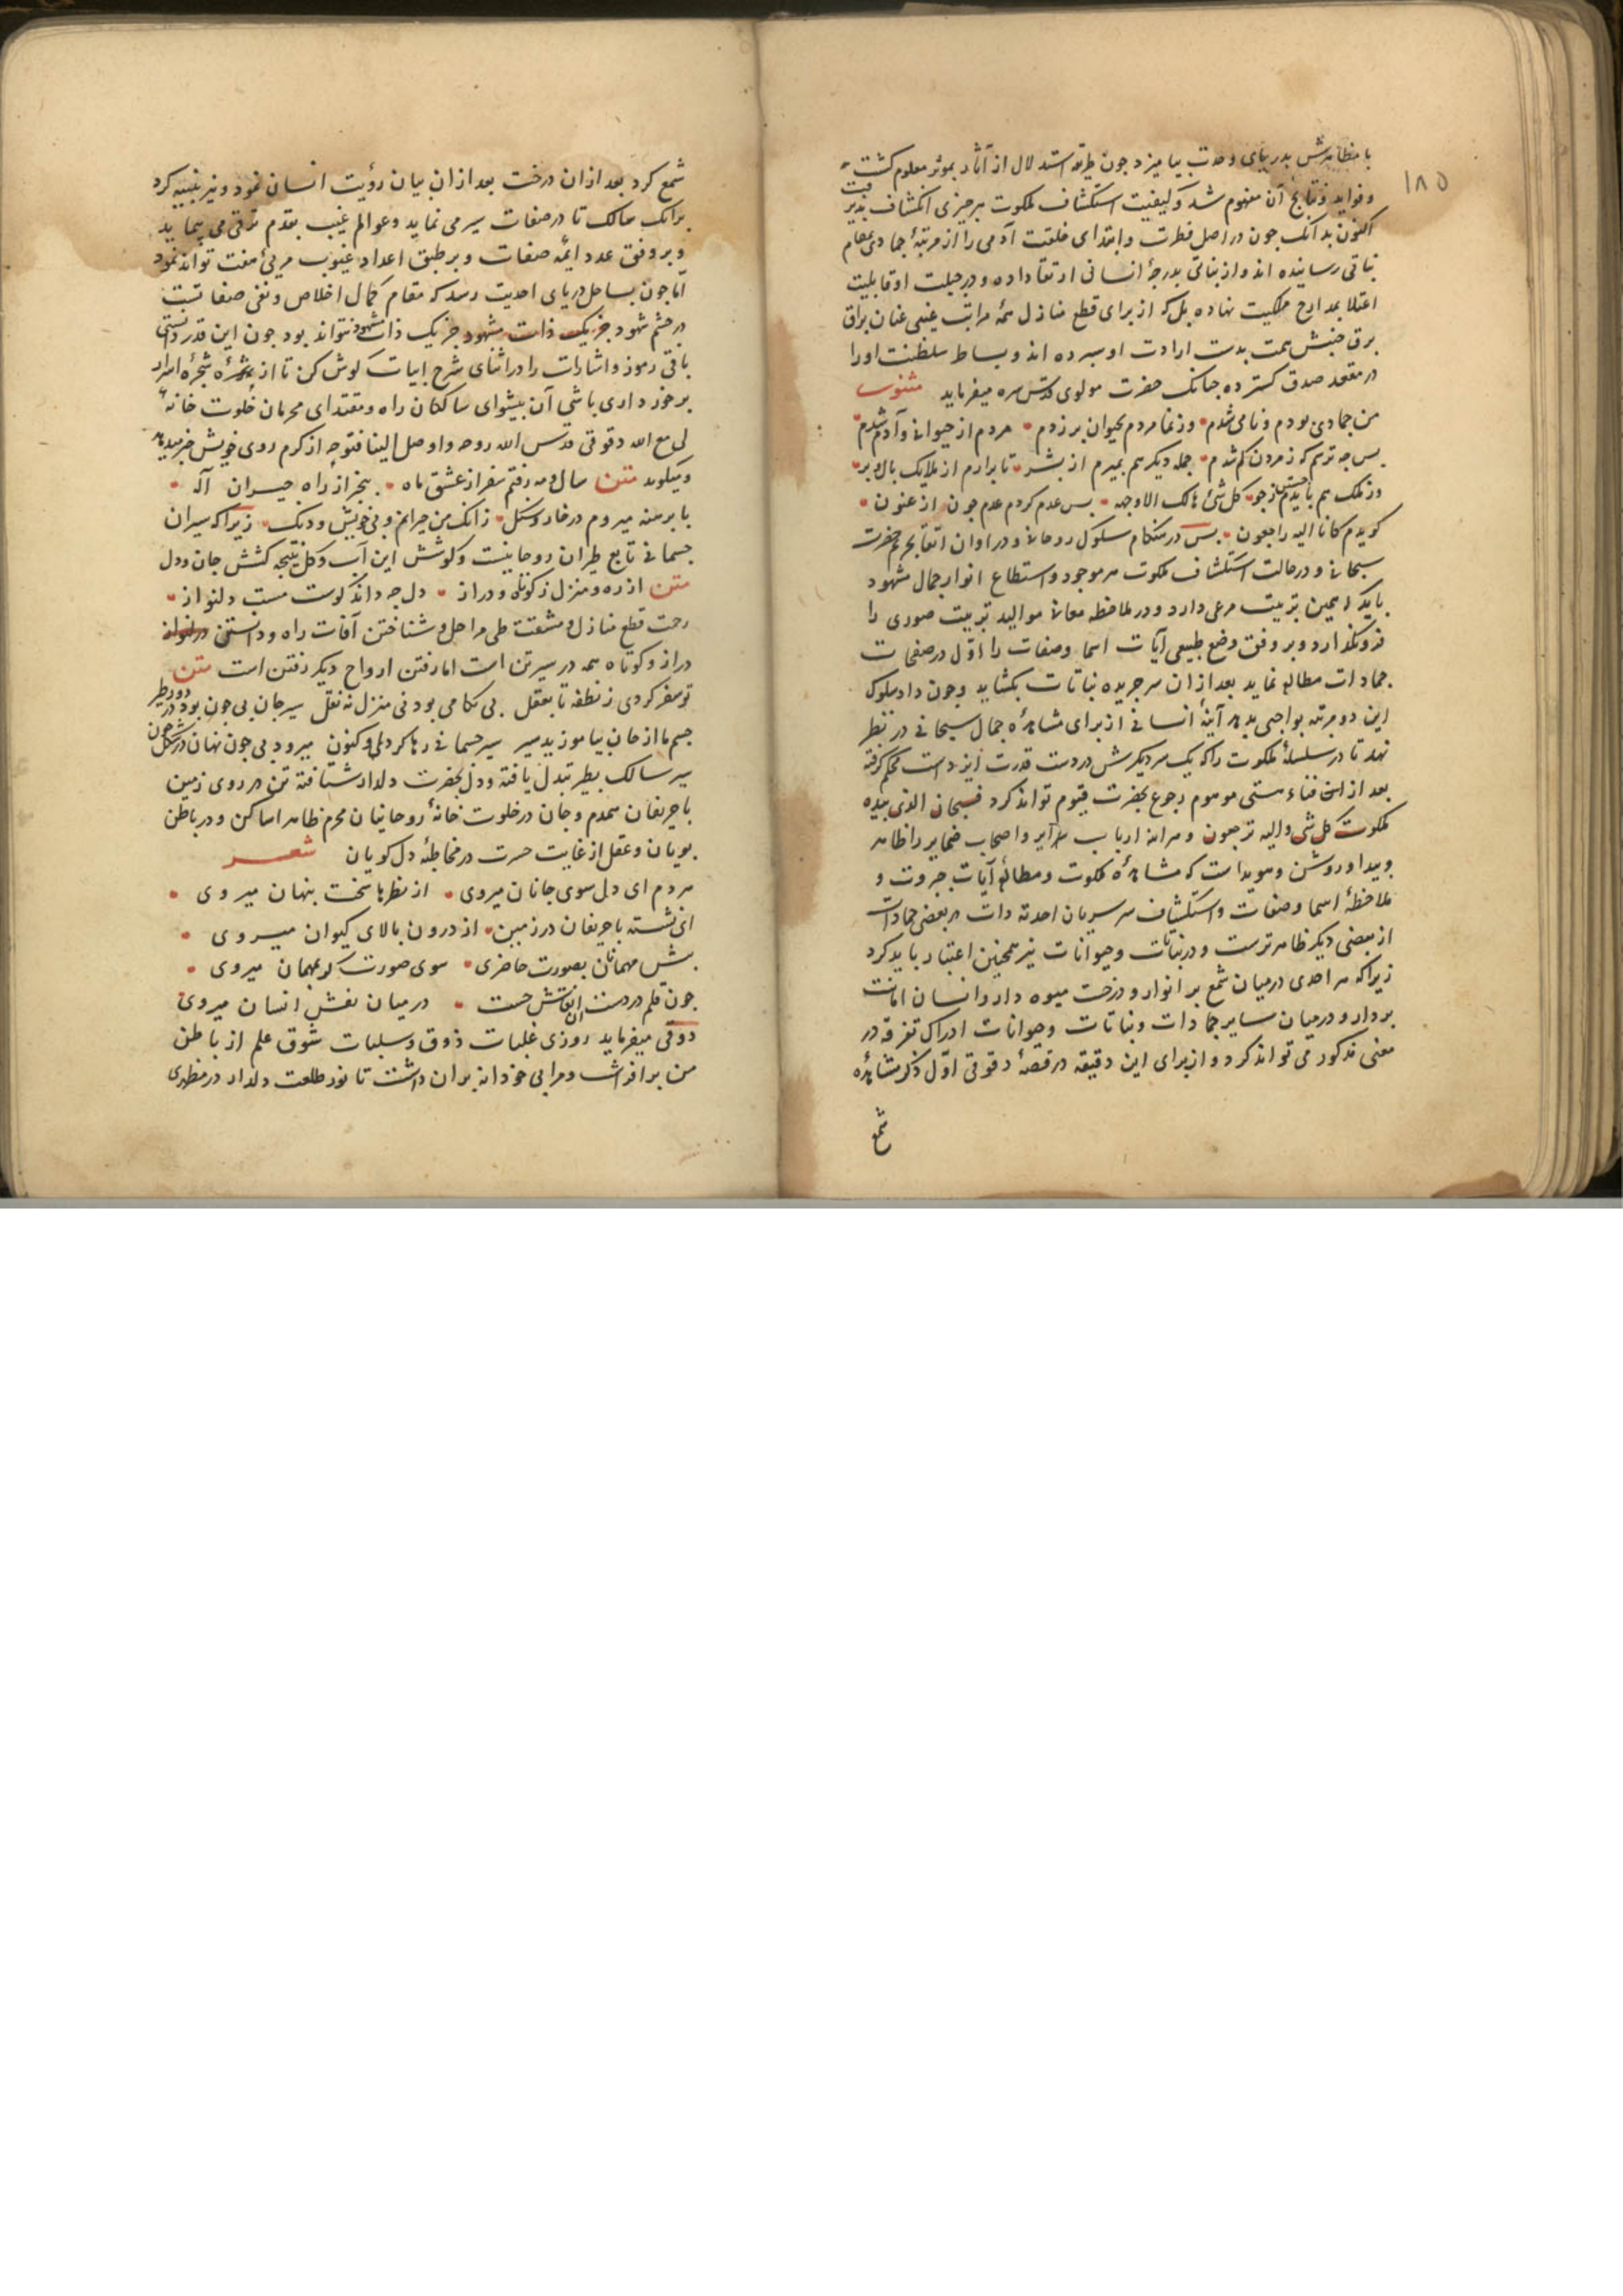 ۱۸۵
با مظاهرش بدریای وحدت بیامیزد جون طریقه استدلال از آثار بموثر معلوم کشت
وفواید ونتایج آن مفهوم شد وکیفیت استکشاف ملکوت هرجیزی انکشاف
اکنون بدانک جون در اصل فطرت وابتدای خلقت آدمی را از مرتبهٔ جمادی بمقام
نباتی رسانیده اند واز نباتی بدرجهٔ انسانی ارتقا داده ودر جبلت او قابلیت
اعتلا بمدارج ملکیت نهاده بل که از برای قطع منازل همهٔ مراتب غیبی عنان براق
برق جنبش همت بدست ارادت او سبرده اند وبساط سلطنت اورا
در مقعد صدق کسترده جنانک حضرت مولوی قدس سره میفرماید مثنوی
من جمادی بودم ونامی شدم وز نما مردم بحیوان برزدم مردم از حیوانی وآدم شدم
بس جه ترسم که ز مردن کم شدم جمله دیکر هم بمیرم از بشر تا برارم از ملایک بال وبر
وز ملک هم بایدم جستن ز جو کل شیٔ هالک الا وجهه بس عدم کردم عدم جون ارغنون
کویدم کانا الیه راجعون بس در هنکام سلوک روحانی ودر اوان التقا بحریم حضرت
سبحانی ودر حالت استکشاف ملکوت هر موجود واستطلاع انوار جمال شهود
باید که همین تربیت مرعی دارد ودر ملاحظه معانی موالید تربیت صوری را
فرونکذارد وبر وفق وضع طبیعی آیات اسما وصفات را اول در صفحات
جمادات مطالعه نماید بعد ازان سر جریده نباتات بکشاید وجون داد سلوک
این دو مرتبه بواجبی بدهد آینهٔ انسانی از برای مشاهدهٔ جمال سبحانی در نظر
نهد تا در سلسلهٔ ملکوت را که یک سر دیکرش در دست قدرت ایزدست محکم کرفته
بعد از فناء هستی موهوم رجوع بحضرت قیوم تواند کرد فسبحان الذی بیده
ملکوت کل شی والیه ترجعون وهرآینه ارباب سرایر واصحاب ضمایر را ظاهر
وبیدا وروشن وهویداست که مشاهدهٔ ملکوت ومطالعهٔ آیات جبروت و
ملاحظهٔ اسما وصفات واستکشاف سر سریان احدیه ذات در بعضی جمادات
از بعضی دیکر ظاهرترست ودر نباتات وحیوانات نیز همجنین اعتبار باید کرد
زیرا که هر احدی درمیان شمع بر انوار ودرخت میوه دار وانسان امانت
بردار ودرمیان سایر جمادات ونباتات وحیوانات ادراک تفرقه در
معنی مذکور می تواند کرد واز برای این دقیقه در قصهٔ دقوقی اول ذکر مشاهدهٔ
شمع
شمع کرد بعد ازان درخت بعد ازان بیان رؤیت انسان نمود ونیز تنبیه کرد
برانک سالک تا در صفات سیر می نماید وعوالم غیب بقدم ترقی می بیماید
وبر وفق عدد ایمّه صفات وبر طبق اعداد غیوب مریٔ هفت تواند نمود
اما جون بساحل دریای احدیت رسد که مقام کمال اخلاص ونفی صفاتست
در جشم شهود جز یک ذات مشهود نتواند بود جون این قدر دانستی
باقی رموز واشارات را در اثنای شرح ابیات کوش کن تا از ثمرهٔ شجرهٔ اسرار
برخورداری باشی آن بیشوای سالکان راه ومقتدای محرمان خلوت خانهٔ
لی مع الله دقوقی قدس الله روحه واوصل الینا فتوحه از کرم روی خویش خبر میدهد
ومیکوید متن سال ومه رفتم سفر از عشق ماه بیخبر از راه حیران اله
با برهنه میروم در خار وسنک زانک من حیرانم وبی خویش ودنک زیرا که سیران
جسمانی تابع طیران روحانیست وکوشش این آب وکل نتیجه کشش جان ودل
متن از ره ومنزل ز کوتاه ودراز دل جه داند کوست مست دلنواز
زحمت قطع منازل ومشقت طی مراحل وشناختن آفات راه ودانستن
دراز وکوتاه همه در سیر تن است اما رفتن ارواح دیکر رفتن است متن
تو سفر کردی ز نطفه تا بعقل نی بکامی بود نی منزل نه نقل سیر جان بی جون بود در دور
جسم ما از جان بیاموزید سیر سیر جسمانی رها کرد او کنون میرود بی جون نهان در شکل جون
سیر سالک بطیر تبدل یافته ودل بحضرت دلدار شتافته تن در روی زمین
با حریفان همدم وجان در خلوت خانهٔ روحانیان محرم ظاهرا ساکن ودر باطن
بویان وعقل از غایت حسرت در مخاطبهٔ دل کویان شعر
هر دم ای دل سوی جانان میروی از نظرها سخت بنهان میروی
ای نشسته با حریفان در زمین از درون بالای کیوان میروی
بیش مهمانان بصورت حاضری سوی صورت کر مهمان میروی
جون قلم در دست آن نقاش جست درمیان نقش انسان میروی
دقوقی میفرماید روزی غلبات ذوق وسلبات شوق علم از باطن
من برافراشت ومرا بی خودانه بران داشت تا نور طلعت دلدار در مظهری